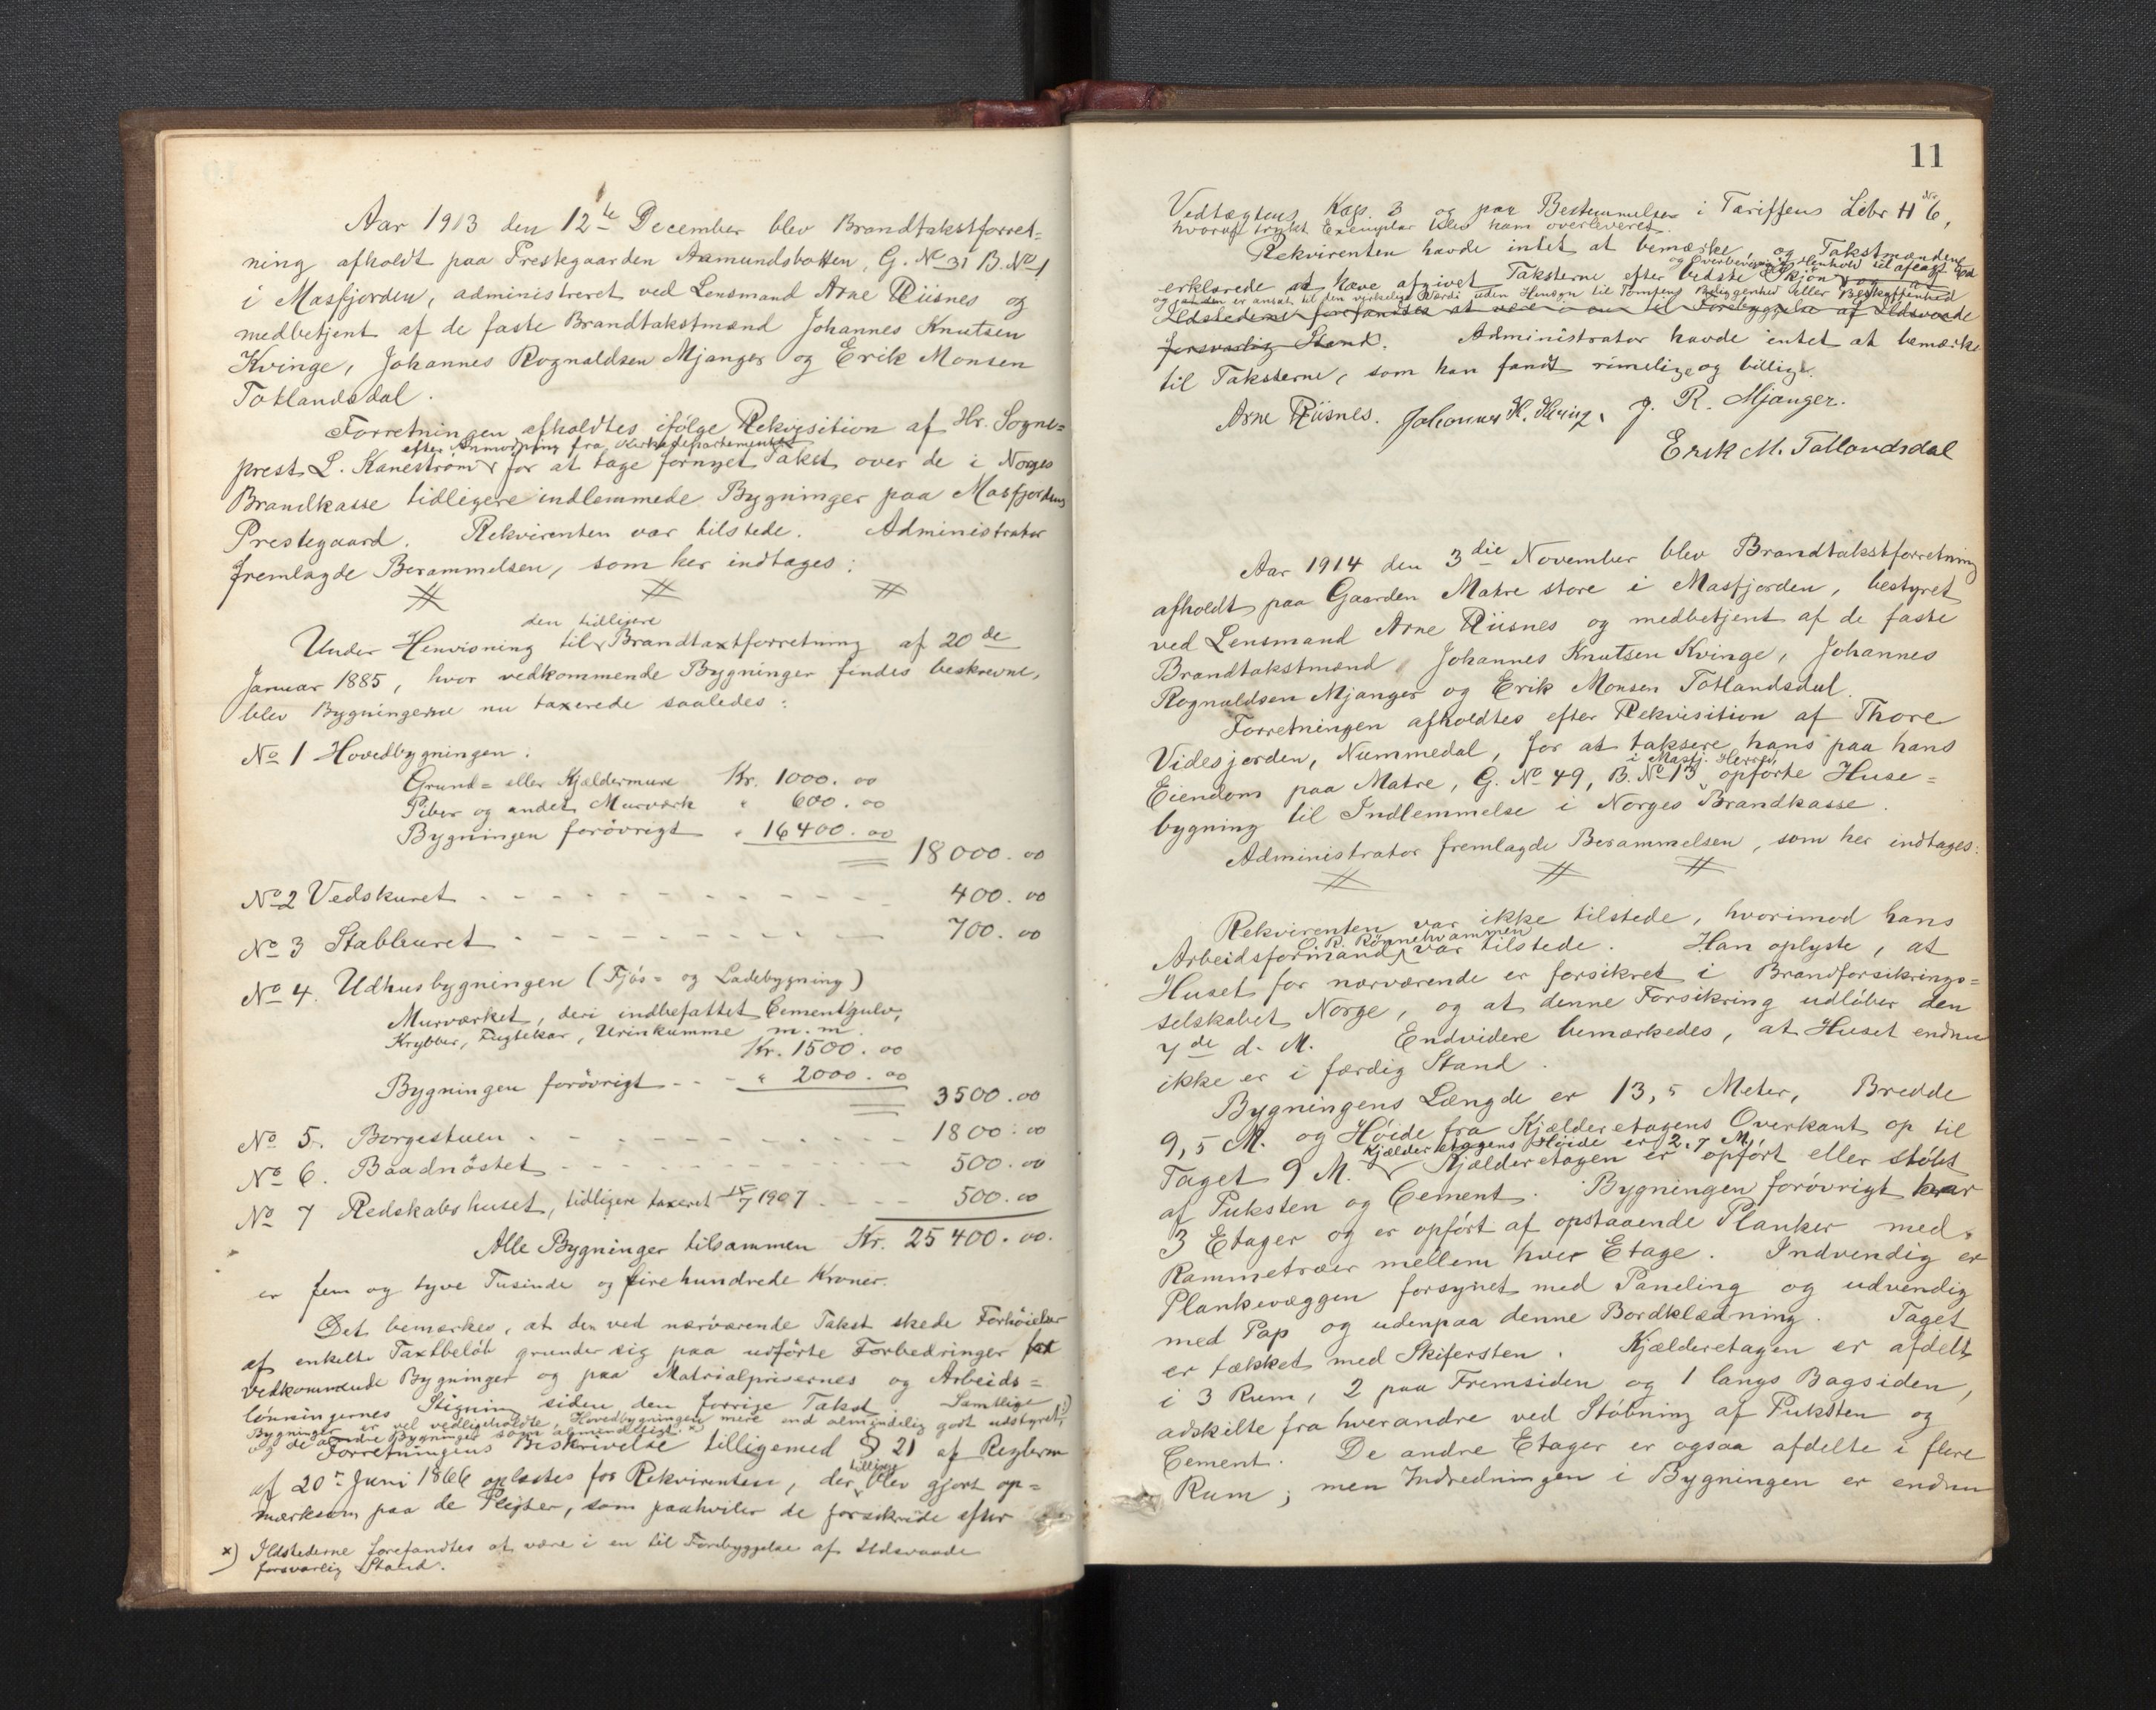 Aar 1913 den 12te December blev Brandtakstforret=
ning afholdt paa Prestegaarden Aamundsbotten, G. No 31 B. No 1
i Masfjorden, administreret ved Lensmand Arne Riisnes og
medbetjent af de faste Brandtakstmænd Johannes Knutsen
Kvinge, Johannes Rognaldsen Mjanger og Erik Monsen
Totlandsdal.
Forretningen afholdtes ifølge Rekvisition af Hr. Sogne=
efter Anmodning fra Kirkedepartementet
prest L. Kanestrøm for at tage fornyet Takst over de i Norges
Brandkasse tidligere indlemmede Bygninger paa Masfjordens
Prestegaard. Rekvirenten var tilstede. Administrator
fremlagde Berammelsen, som her indtages:
# # #
den tidligere
Under Henvisning til Brandtaxtforretning af 20de
Januar 1885, hvor vedkommende Bygninger findes beskrevne,
blev Bygningerne nu taxerede saaledes:
No 1 Hovedbygningen:
Grund= eller Kjældermure Kr. 1000.00
Piber og andet Murværk " 600.00
Bygningen forøvrigt " 16400.00
18000.00
No 2 Vedskuret - - - 400.00
No 3 Stabburet - - - 700.00
No 4. Udhusbygningen (Fjøs= og Ladebygning)
Murværket, deri indbefattet Cementgulv,
Krybber, Fugtekar, Urinkumme m.m.
Kr. 1500.00
Bygningen forøvrigt - - - " 2000.00
3500.00
No 5. Borgestuen - - - 1800.00
No 6. Baadnøstet - - - 500.00
No 7 Redskabshuset, tidligere taxeret 15/7 1907 - - - 500.00
Alle Bygninger tilsammen Kr. 25400.00.
er fem og tyve Tusinde og firehundrede Kroner.
Det bemærkes, at den ved nærværende Takst skede Forhøielse
af enkelte Taxtbeløb grunder sig paa udførte Forbedringer
vedkommende Bygninger og paa Matrialprisernes og Arbeids=
lønningernes Stigning siden den forrige Takst. Samtlige
Bygninger er vel vedligeholdte, Hovedbygningen mere end almindelig godt udstyret,
og de andre Bygninger som almindeligt. x)
Forretningens Beskrivelse tilligemed § 21 af Reglerne
tillige
af 20n Juni 1866 oplæstes for Rekvirenten, der blev gjort op=
mærksom paa de Pligter, som paahviler de forsikrede efter
x) Ildstederne forefandtes at være i en til Forebyggelse af Ildsvaade
forsvarlig Stand.
11
Vedtægtens Kap. 3 og paa Bestemmelsen i Tariffens Litr H No 6,
hvoraf trykt Exemplar blev ham overleveret.
Rekvirenten havde intet at bemærke, og Takstmændene
og Overbevisning i Henhold til aflagt Ed
erklærede at have afgivet Taksterne efter bedste Skjøn og
og at den er ansat til den virkelige Værdi uden Hensyn til Tomtens Beliggenhed eller Beskaffenhed
Ildstederne forefandtes at være i en til Forebyggelse af Ildsvaade
forsvarlig Stand. Administrator havde intet at bemærke
til Taksterne, som han fandt rimelige og billige.
Arne Riisnes. Johannes K. Kvinge J. R. Mjanger.
Erik M. Totlandsdal
Aar 1914 den 3die November blev Brandtakstforretning
afholdt paa Gaarden Matre store i Masfjorden, bestyret
ved Lensmand Arne Riisnes og medbetjent af de faste
Brandtakstmænd Johannes Knutsen Kvinge, Johannes
Rognaldsen Mjanger og Erik Monsen Totlandsdal.
Forretningen afholdtes efter Rekvisition af Thore
Videsjorden, Nummedal, for at taksere hans paa hans
i Masfj. Herred,
Eiendom paa Matre, G. No 49, B. No 13 opførte Huse=
bygning til Indlemmelse i Norges Brandkasse.
Administrator fremlagde Berammelsen, som her indtages:
# # #
Rekvirenten var ikke tilstede, hvorimod hans
O. R. Rønnehvammen
Arbeidsformand var tilstede. Han oplyste, at
Huset for nærværende er forsikret i Brandforsikrings=
selskabet Norge, og at denne Forsikring udløber den
7de d. M. Endvidere bemærkedes, at Huset endnu
ikke er i færdig Stand.
Bygningens Længde er 13,5 Meter, Bredde
9,5 M. og Høide fra Kjælderetagens Overkant op til
Kjælderetagens Høide er 2,7 M.
Taget 9 M. Kjælderetagen er opført eller støbt
af Puksten og Cement. Bygningen forøvrigt har
3 Etager og er opført af opstaaende Planker med
Rammetræer mellem hver Etage. Indvendig er
Plankevæggen forsynet med Paneling og udvendig
med Pap og udenpaa denne Bordklædning. Taget
er tækket med Skifersten. Kjælderetagen er afdelt
i 3 Rum, 2 paa Fremsiden og 1 langs Bagsiden,
adskilte fra hverandre ved Støbning af Puksten og
Cement. De andre Etager er ogsaa afdelte i flere
Rum; men Indredningen i Bygningen er endnu